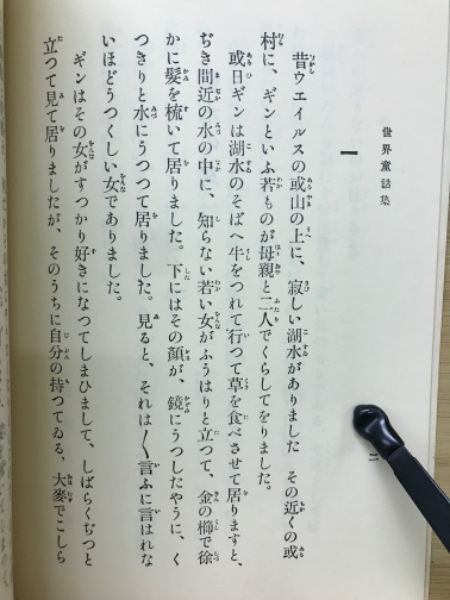 世界童話集
二
一
昔ウエイルスの或山の上に、寂しい湖水がありました その近くの或
村に、ギンといふ若ものが母親と二人でくらしてをりました。
或日ギンは湖水のそばへ牛をつれて行つて草を食べさせて居りますと、
ぢき間近の水の中に、知らない若い女がふうはりと立つて、金の櫛で徐
かに髪を梳いて居りました。下にはその顔が、鏡にうつしたやうに、く
つきりと水にうつつて居りました。見ると、それは〳〵言ふに言はれな
いほどうつくしい女でありました。
ギンはその女がすつかり好きになつてしまひまして、しばらくぢつと
立つて見て居りましたが、そのうちに自分の持つてゐる、大麥でこしら